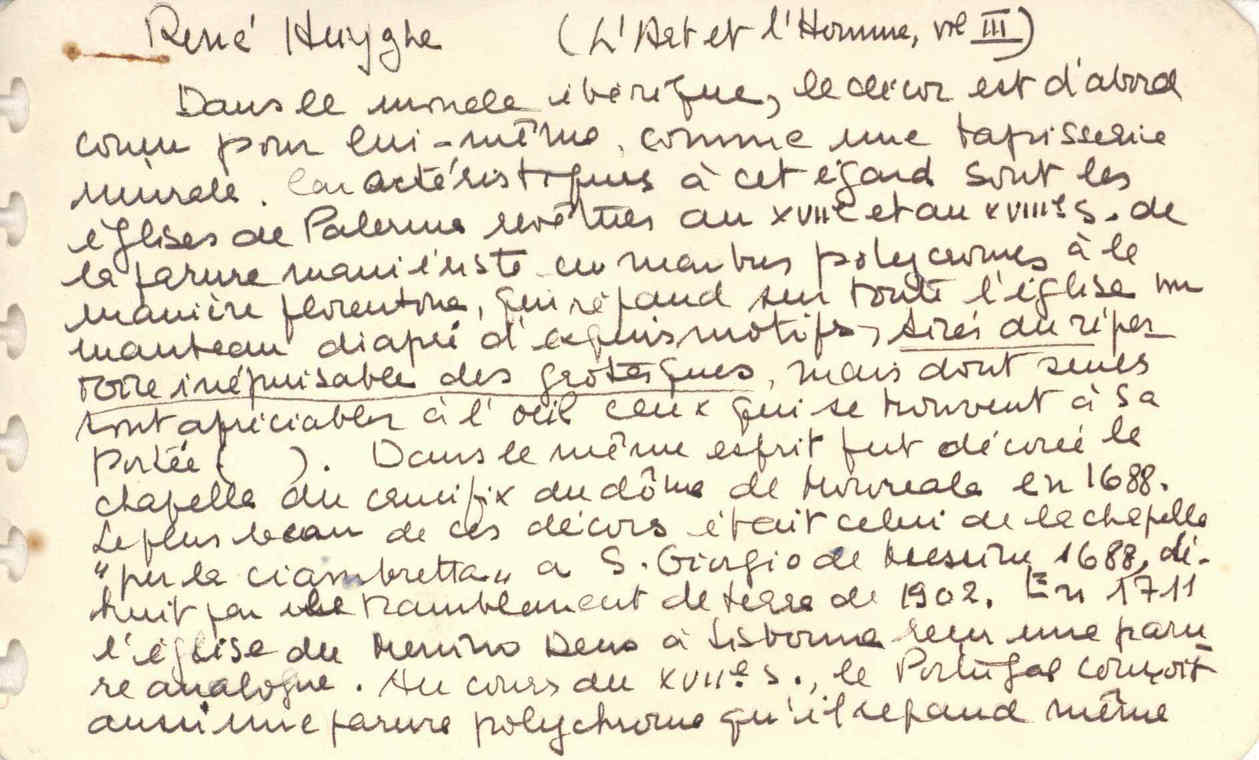 René Huyghe (L'Art et l'Homme, vol III)
Dans le monde ibérique, le décor est d'abord
conçu pour lui-même, comme une tapisserie
murale. Caractéristiques à cet égard sont les
églises de Palerme revêtues au XVIIe et au XVIIIe s. de
la parure maniériste en marbres polycromes à la
manière florentine, qui répand sur toute l'église un
manteau diapré d'exquis motifs, tirés du réper
toire inépuisable des grotesques, mais dont seules
sont apréciables à l'oeil ceux qui se trouvent à sa
portée ( ). Dans le même esprit fut décorée la
chapelle du crucifix du dôme de Monreale en 1688.
Le plus beau de ces décors était celui de la chapelle
"per la ciambretta" a S. Giorgio de Messine 1688, dé-
truit par le tramblement de terre de 1902. En 1711
l'église du Menino Deus à Lisbonne reçu une paru
re analogue. Au cours du XVIIe s., le Portugal conçoit
aussi une parure polychrome qu'il répand même